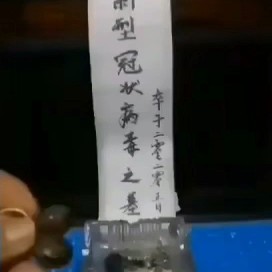 新型冠状病毒之墓
卒于二零二零年月